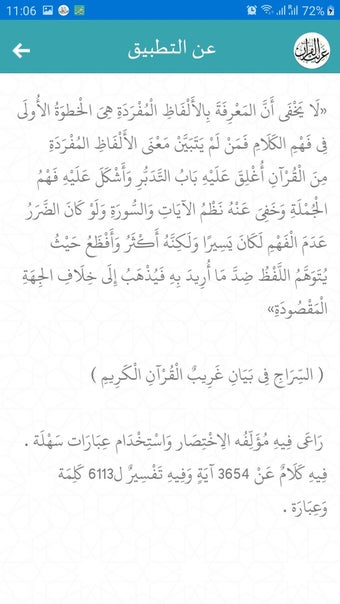 11:06 72%
عن التطبيق
غريب القرآن
«لَا يَخْفَى أَنَّ المَعْرِفَةَ بِالأَلْفَاظِ الْمُفْرَدَةِ هِىَ الْخطوَةُ الأُولَى
فِى فَهْمِ الكَلَامِ فَمَنْ لَمْ يَتَبَيَّنْ مَعْنَى الأَلْفَاظِ المُفْرَدَةِ
مِنَ الْقُرْآنِ أُغْلِقَ عَلَيْهِ بَابُ التَّدَبُّرِ وَأَشْكَلَ عَلَيْهِ فَهْمُ
الجُمْلَةِ وَخَفِىَ عَنْهُ نَظْمُ الآيَاتِ وَالسُّورَةِ وَلَوْ كَانَ الضَّرَرُ
عَدَمَ الْفَهْمِ لَكَانَ يَسِيرًا وَلَكِنَّهُ أَكْثَرُ وَأَفْظَعُ حَيْثُ
يُتَوَهَّمُ اللَّفْظُ ضِدَّ مَا أُرِيدَ بِهِ فَيُذْهَبُ إِلَى خِلَافِ الجِهَةِ
الْمَقْصُودَةِ»
( السِّرَاجِ فِى بَيَانِ غَرِيبٌ الْقُرْآنِ الْكَرِيمِ )
رَاعَى فِيهِ مُؤَلِّفُه الِاخْتِصَار وَاسْتِخْدَام عِبَارَات سَهْلَة .
فِيهِ كَلَامٌ عَنْ 3654 آيَةٍ وَفِيهِ تَفْسِيرٌ ل6113 كَلِمَة
وَعِبَارَة .